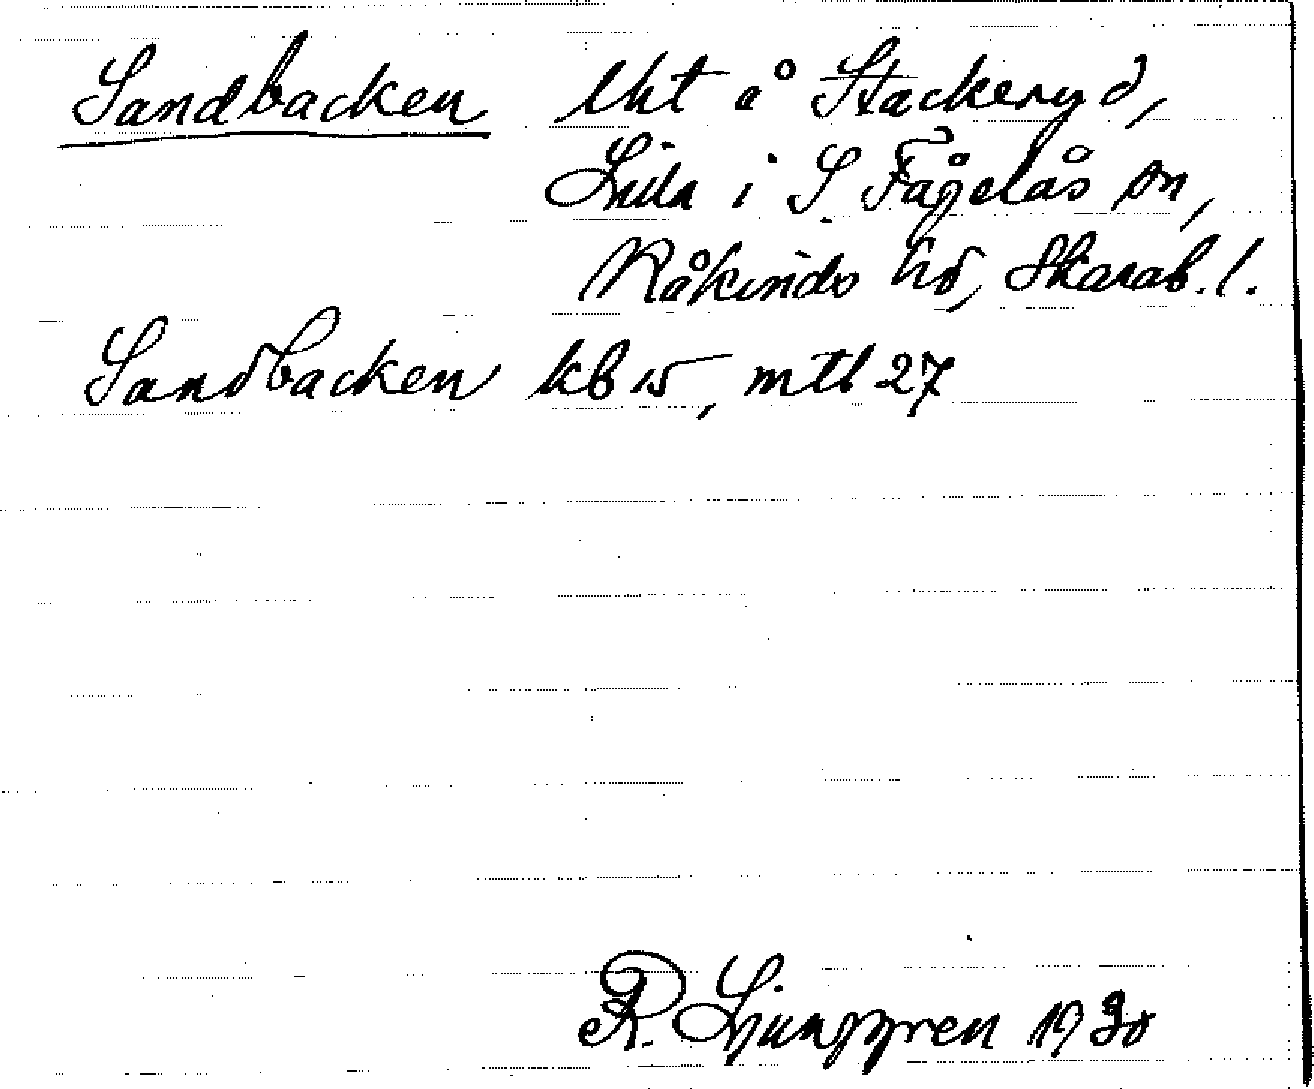 Sandbacken lht å Stackeryd,
Lilla i S Fågelås sn,
Kåkinds hd, Skarab. l.
Sandbacken kb 15, mtl 27
R. Ljunggren 1930